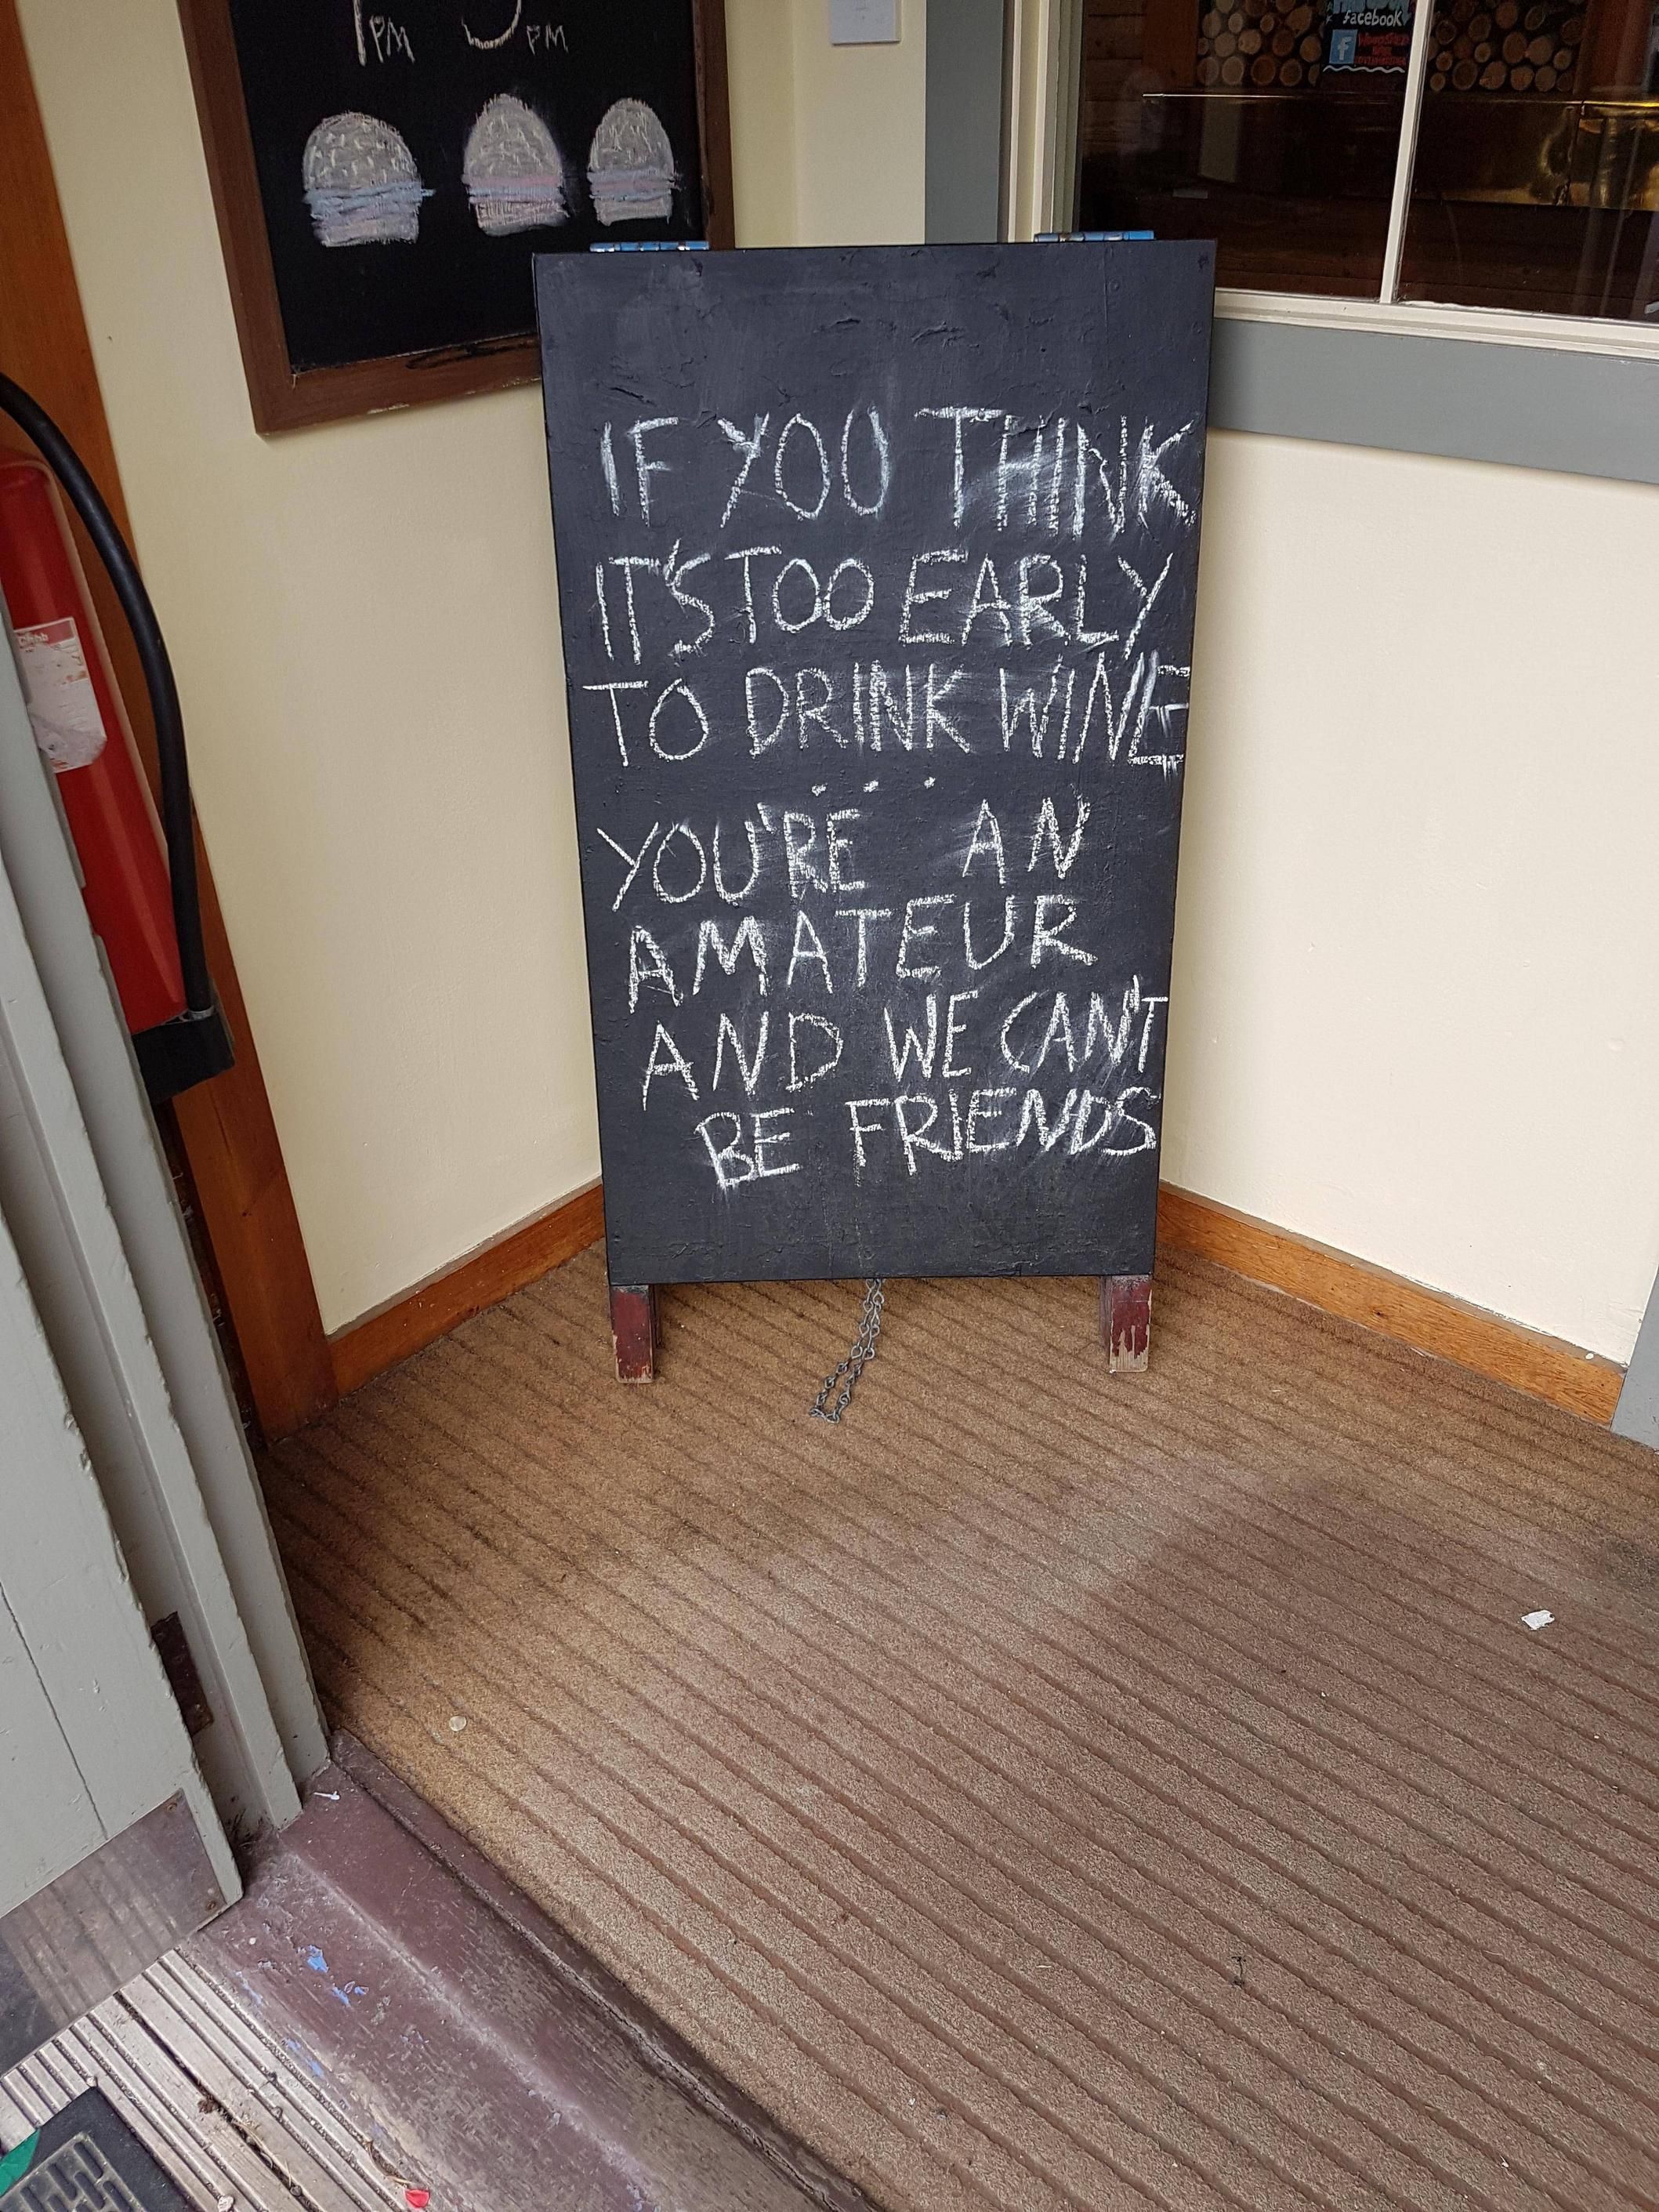 PM PM
facebook
f
IF YOU THINK
IT'S TOO EARLY
TO DRINK WINE
...
YOU'RE AN
AMATEUR
AND WE CAN'T
BE FRIENDS